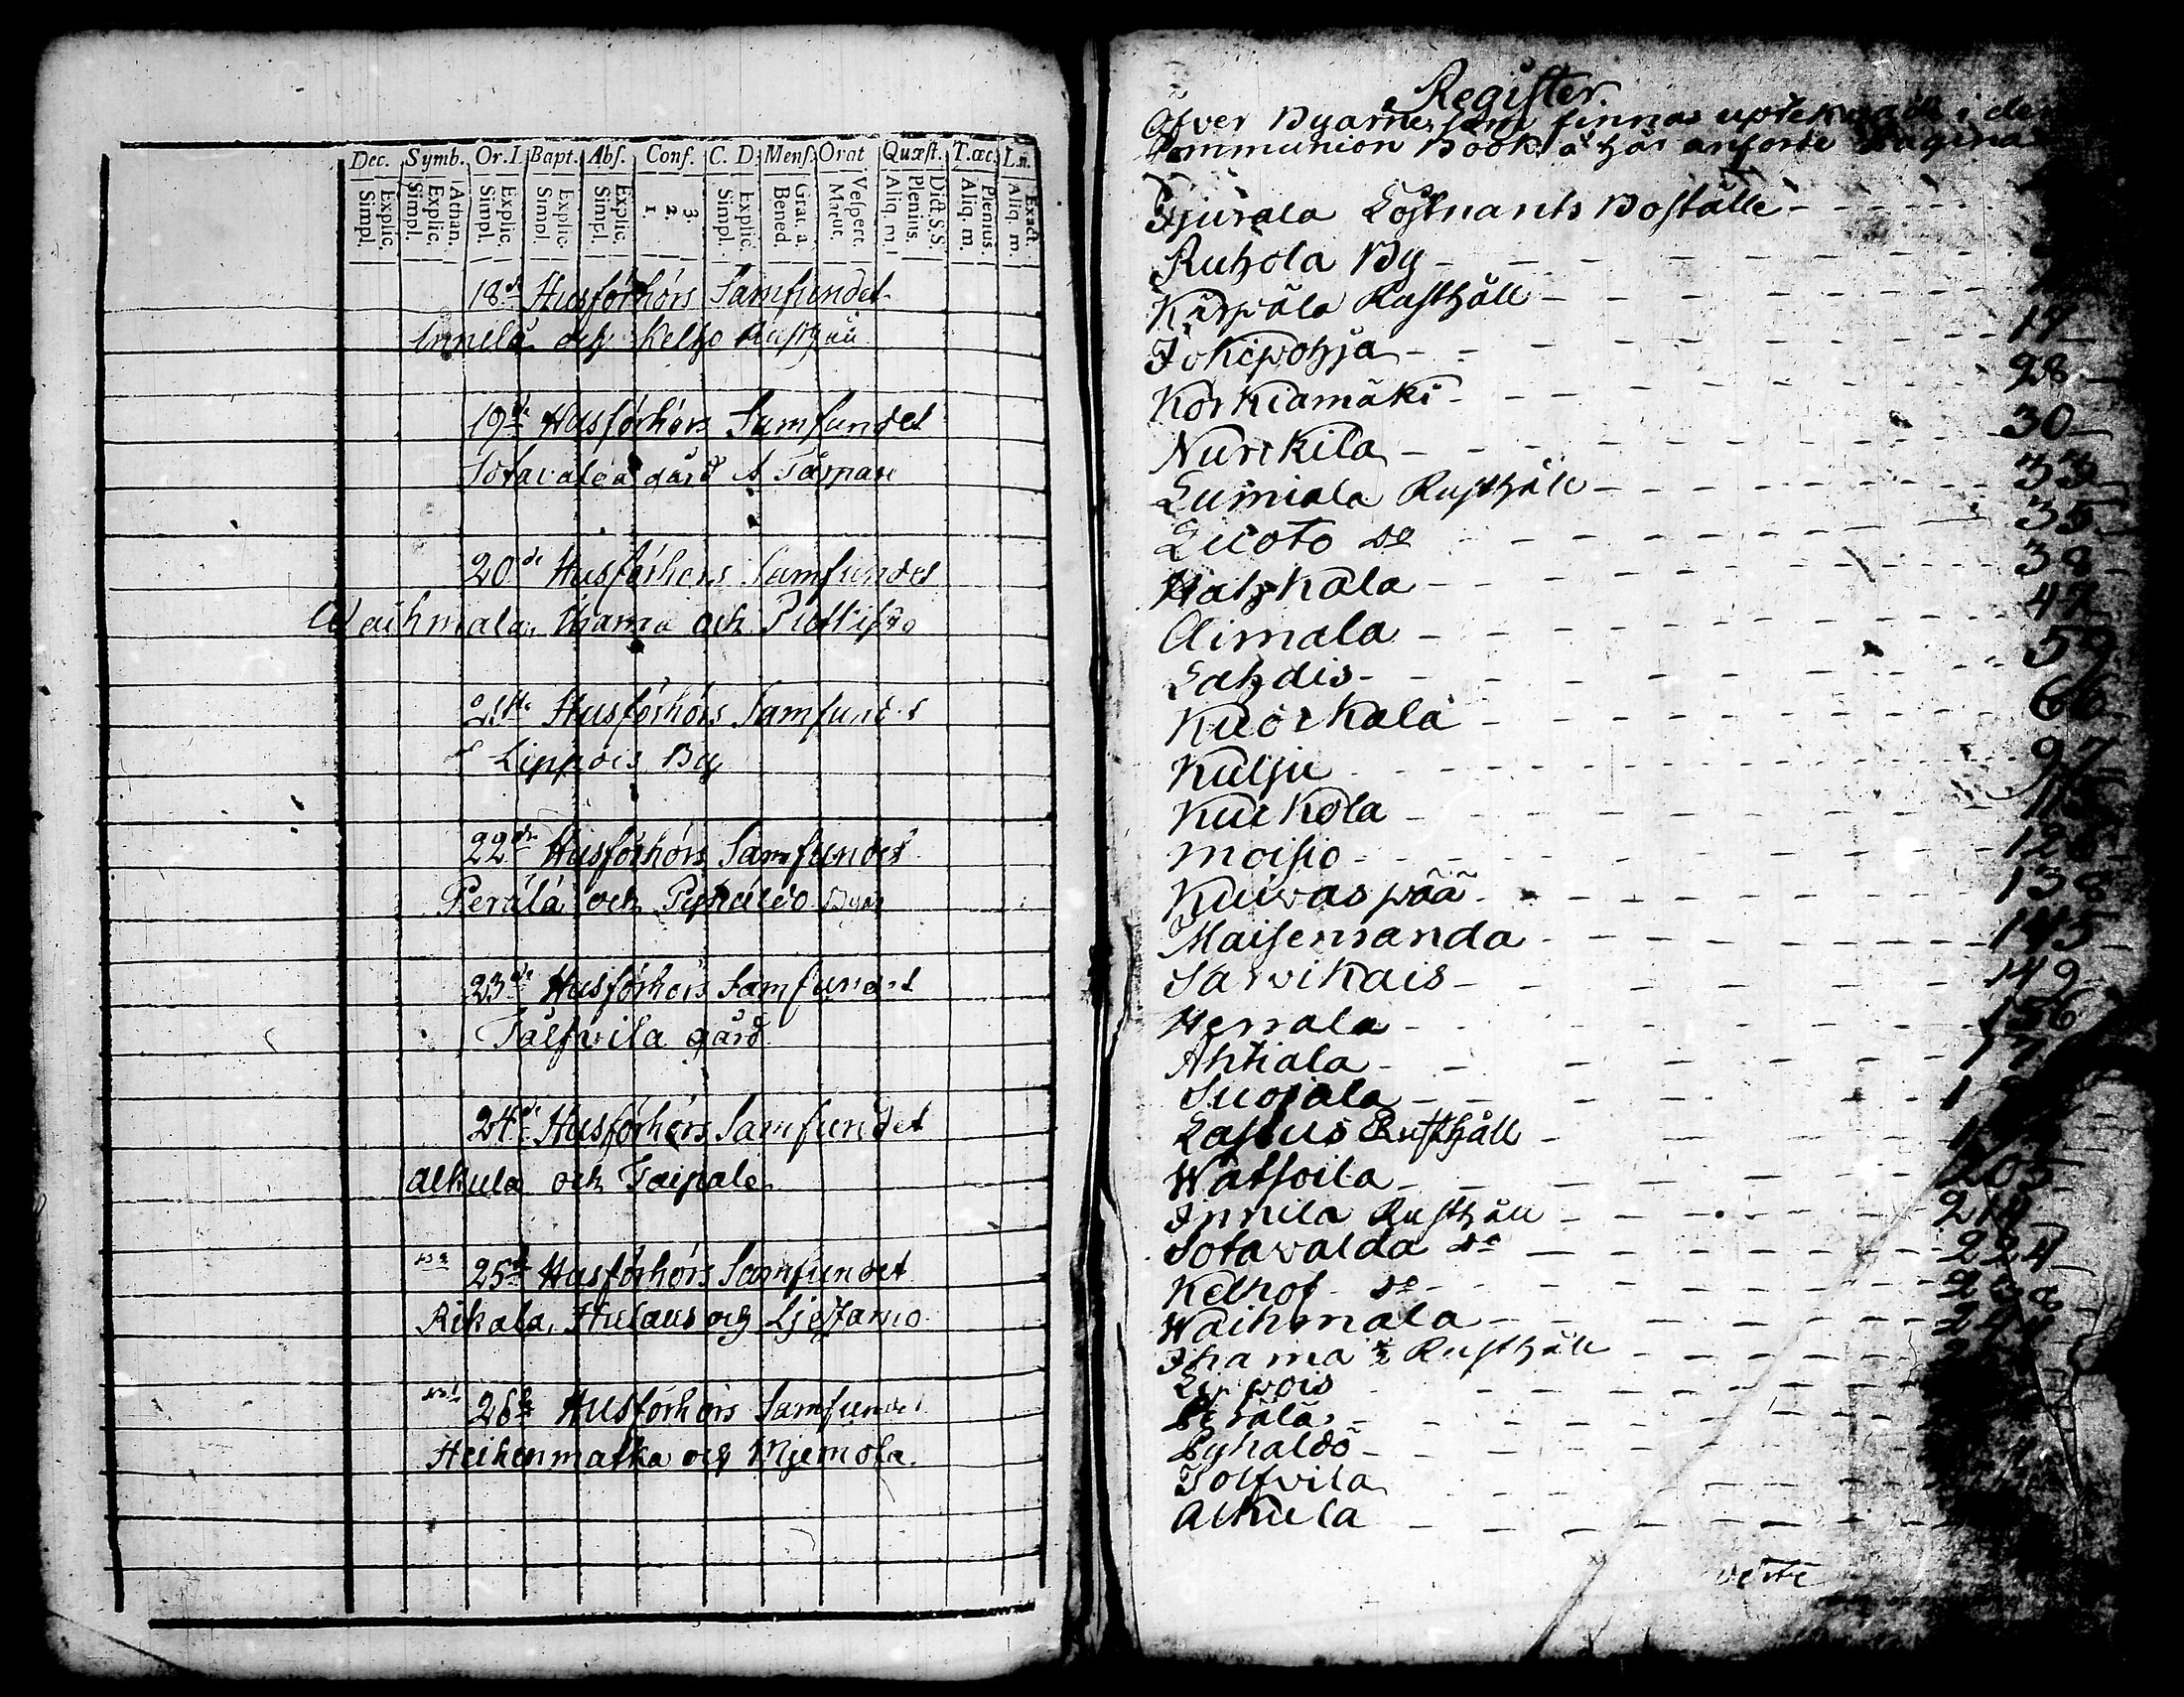 Dec. Symb. Or. I. Bapt. Abs. Conf. C. D. Mens. Orat Quæst. T. œc. L. n.
Explic. Simpl. Athan. Explic. Simpl. Explic. Simpl. Explic. Simpl. Explic. Simpl. 3. 2. 1. Explic. Simpl. Grat. a. Bened. Vespert. Matut. Dict. S.S. Plenius. Aliq. m. Plenius. Aliq. m. Exact. Aliq. m.
18de Husförhörs Samfundet
Innila och Kelho Rusthåll
19de Husförhörs Samfundet
Sotavalda gård
20de Husförhörs Samfundet
Waihmala, Ihama och
21sta Husförhörs Samfundet
Lippois By
22dra Husförhörs Samfundet
Perälä och Pyhäldö Byar
23de Husförhörs Samfundet
Tålfvila gård
24de Husförhörs Samfundet
Alkula och Taipale
25te Husförhörs Samfundet
Rikala, Hulaus och
26te Husförhörs Samfundet
Heikenmatka och Mjemola.
Register.
Öfver Byarne, som finnas upteknade i den
Communion Book, å här anförde Pagina
Hjurala Löjtnants Boställe
Ruhola By
Kirpälä Rusthåll
Jokipohja 17
Korkiamäki 28
Nurckila 30
Lumiala Rusthåll 33
Luoto do 35
Hatzkala 38
Aimala 47
Lahdis 59
Kuorkala 66
Kulju 97
Kurkola 115
Moisio 128
Kuivaspää 138
Maisenranda 145
Sarvikais 149
Herrala 156
Ahtiala
Suojala
Lastus Rusthåll
Watsoila 205
Innila Rusthåll 214
Sotavalda do 224
Kelhof do
Waihmala 244
Ihama ½ Rusthåll
Lippois
Perälä
Pyhaldö
Tolfvila
Alkula
verte